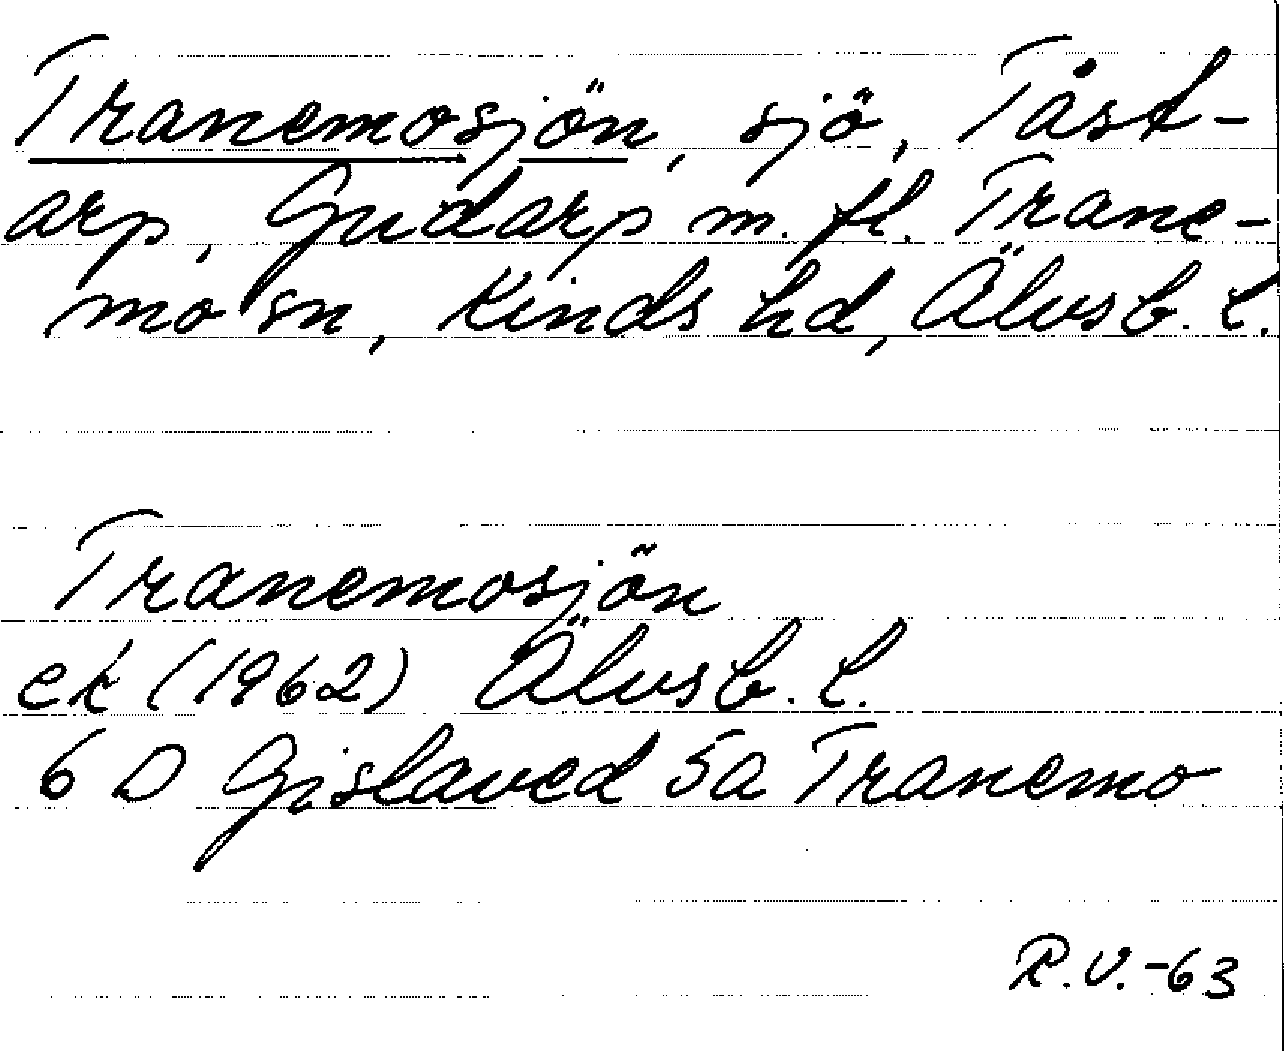 Tranemosjön, sjö, Tåst-
arp, Gudarp m. fl. Trane-
mo sn, Kinds hd, Älvsb. l.
Tranemosjön
ek (1962) Älvsb. l.
6 D Gislaved 5a Tranemo
R.V.-63